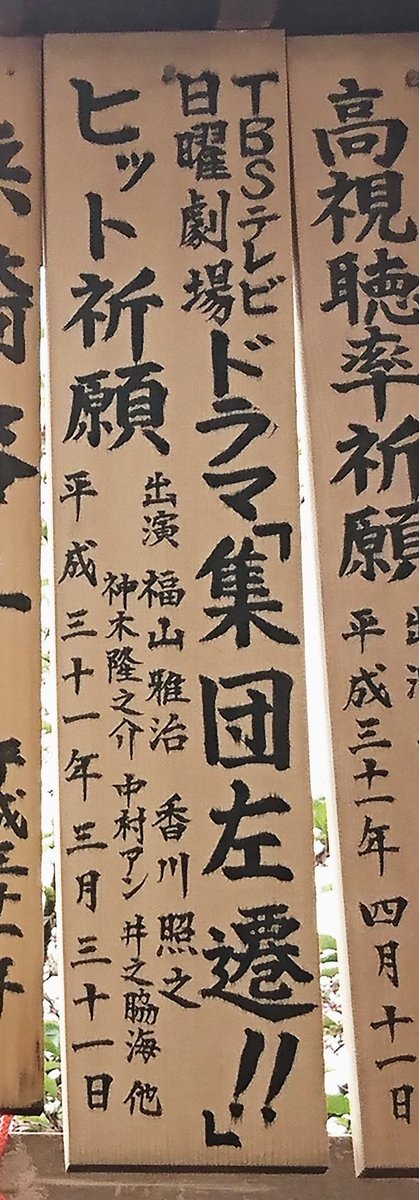 高視聴率祈願
平成三十一年 四月 十一日
TBSテレビ
日曜劇場
ドラマ「集団左遷!!」
ヒット祈願
出演 福山雅治 香川照之
神木隆之介 中村アン 井之脇海 他
平成三十一年 三月 三十一日
平成三十一年